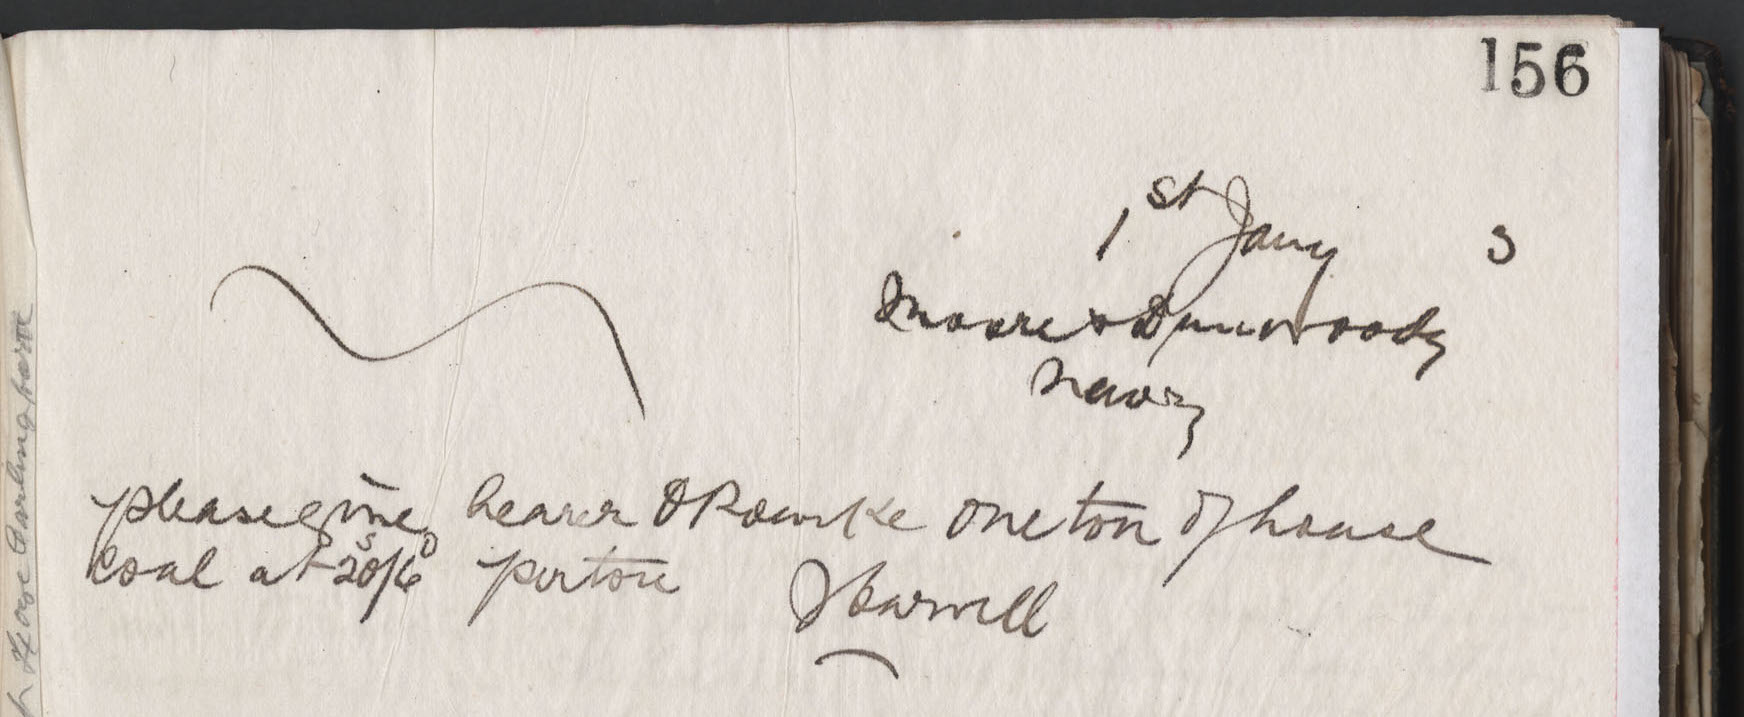 156
1st Jany 3
Moore & Dunwoody
Newry
please give bearer O Rourke one ton of house
coal at 20s/6d per ton J Carvill